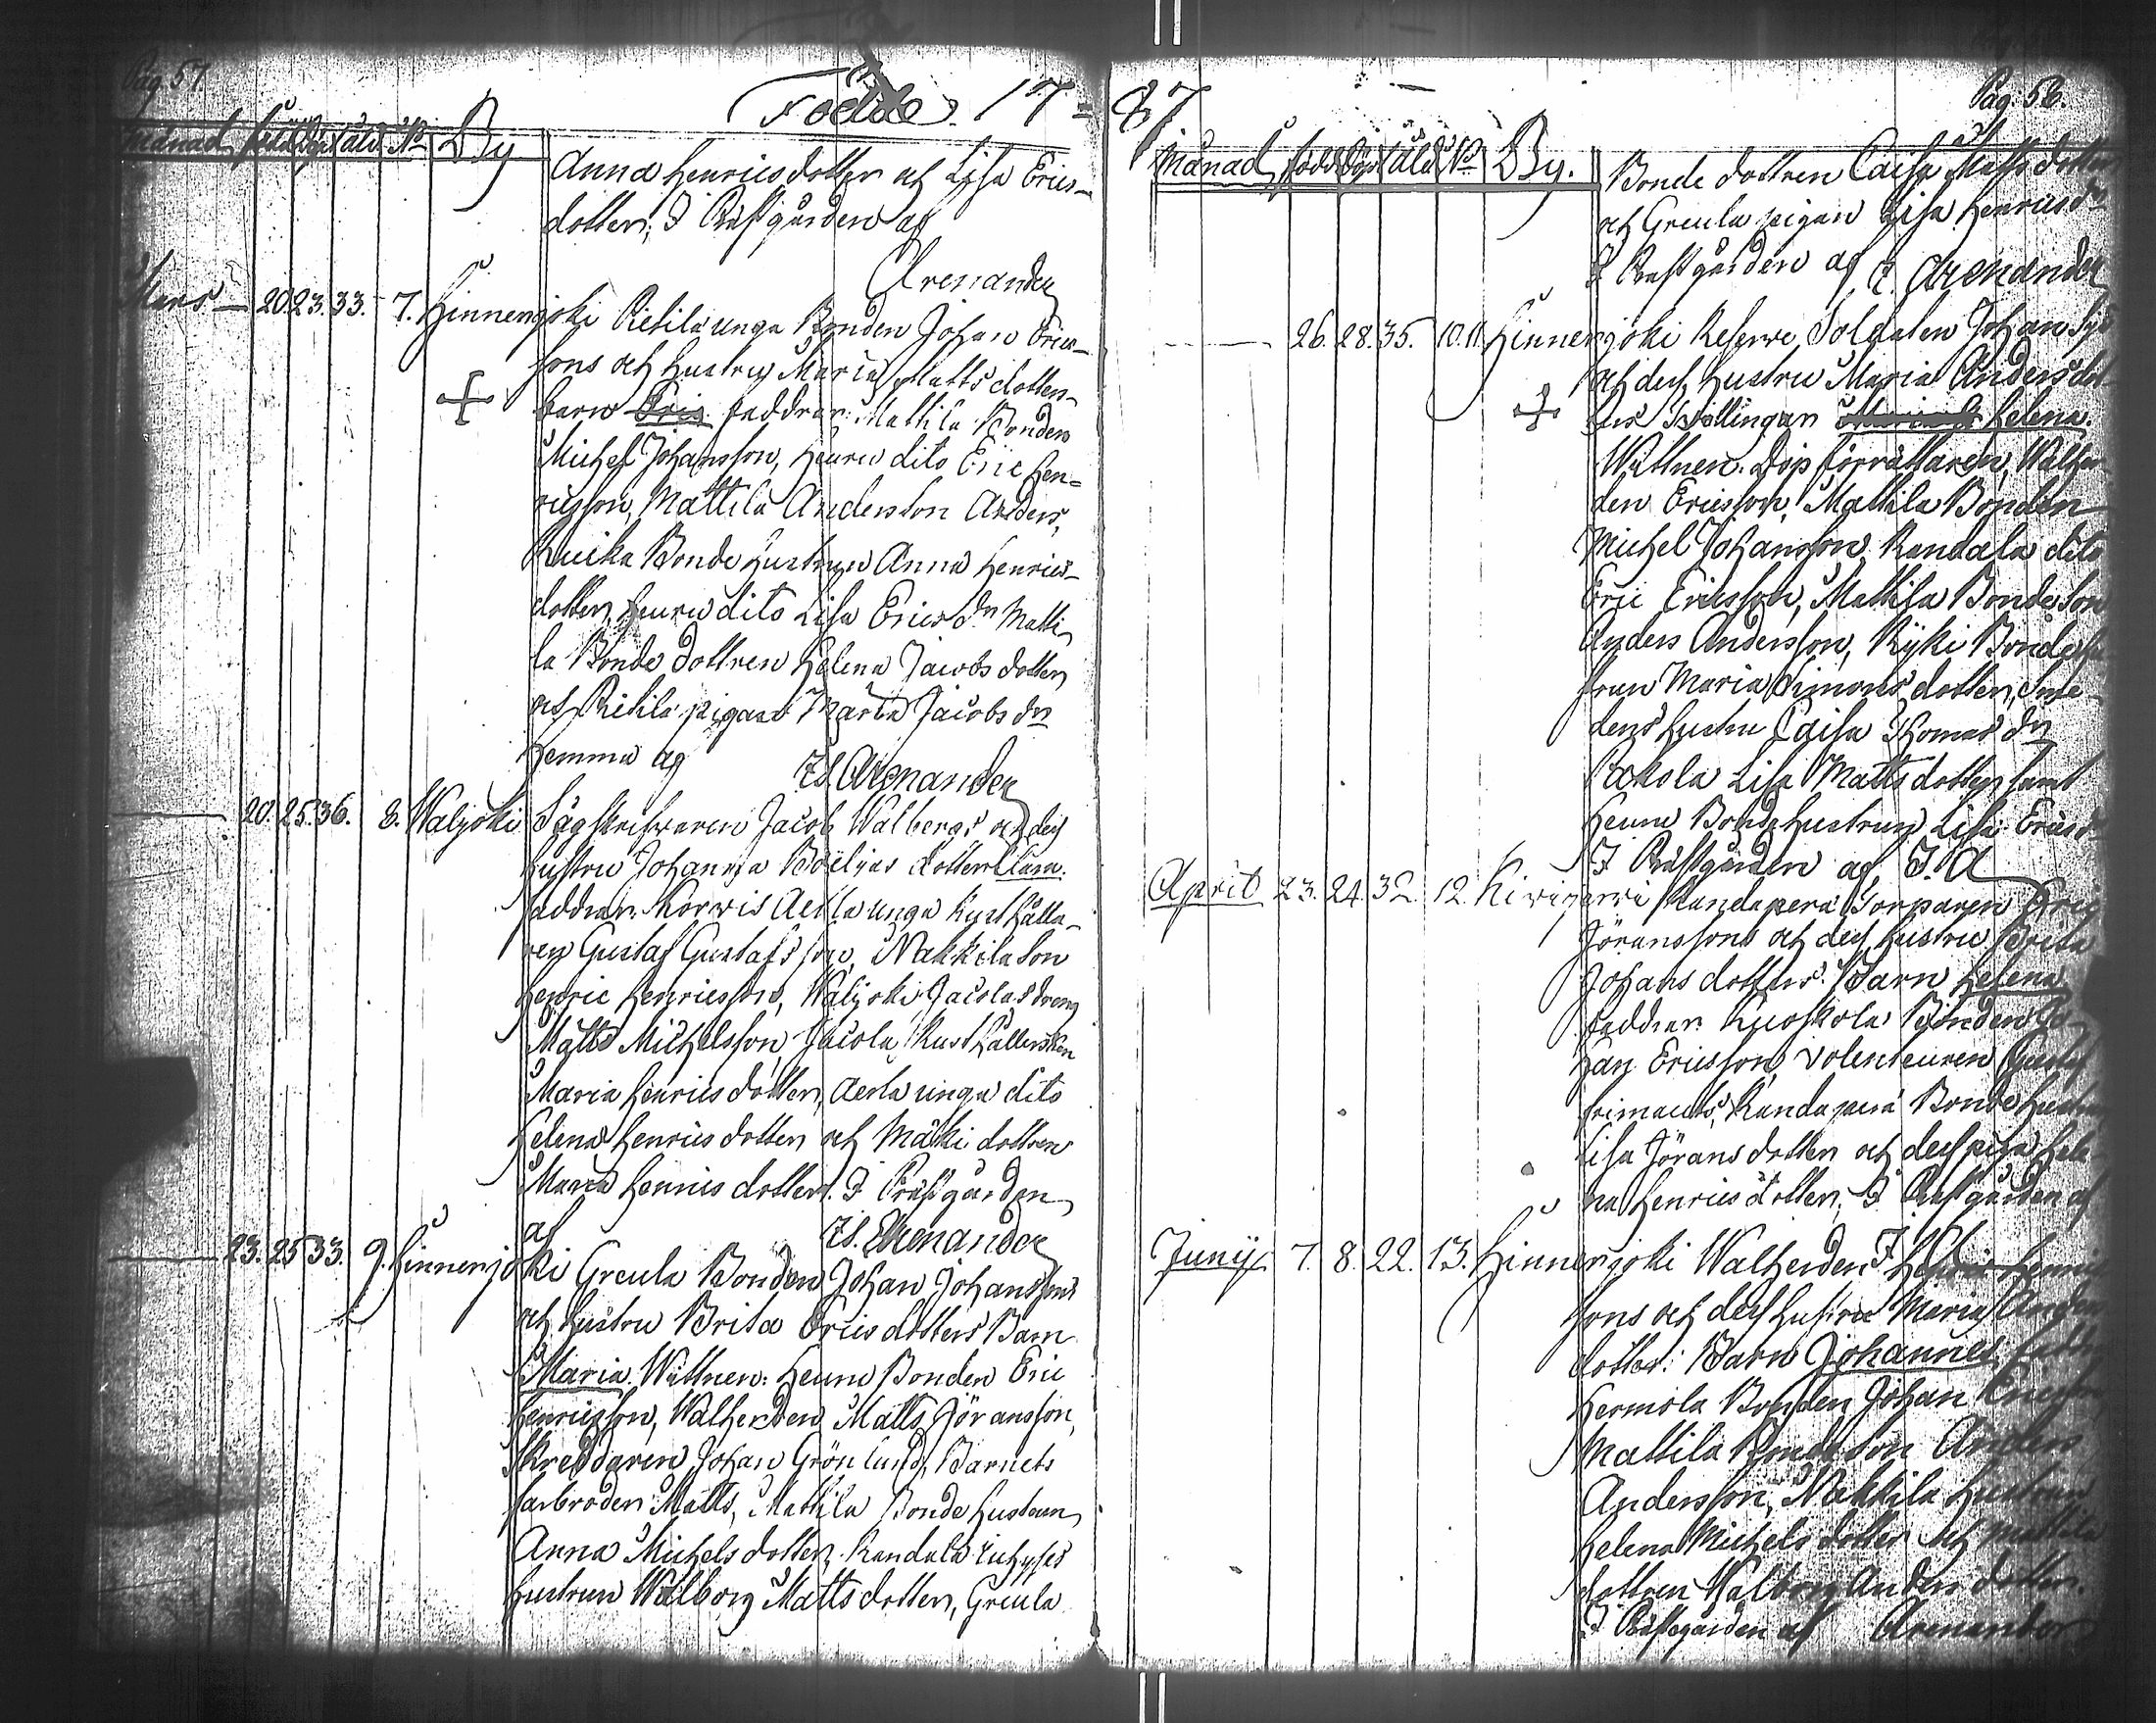 Pag 57.
Födde. 17=
Månad född Döpt åld No By
Anna Henricsdotter och Lisa Erics-
dotter, I Prästgården af
Arenander
Mars — 20. 23. 33. 7. Hinnerjoki Pietilä unga Bonden Johan Erics-
sons och hustru Maria Matts dotters
barn Eric faddrar: Mattila Bonden
Michel Johansson, Heuru dito Eric Hen=
ricsson, Mattila Anderson Anders,
Ruika Bonde hustrun Anna Henrics-
dotter, Heuru dito Lisa Erics dr Matti
la Bonde dottren Helena Jacobs dotter
och Pietilä pigan Maria Jacobs dr
hemma af J. Arenander
20. 25. 36. 8. Waljoki Sågskrifvaren Jacob Walbergs och dess
hustru Johanna Boëlias dotter Clara.
faddrar: Korvis Aerla unga Rusthålla-
ren Gustaf Gustafsson, Nakkila Son
Henric Henricsson, Waljoki Jacolas dreng
Matts Michelsson, Jacola Rusthållerskan
Maria Henrics dotter, Aerla unga dito
Helena Henrics dotter och Mäki dottren
Maria Henrics dotter. I Prästgården
af J. Arenander
23. 25 33. 9. Hinnerjoki Greula Bonden Johan Johanssons
och hustru Brita Erics dotters Barn
Maria. Wittnen: Heuru Bonden Eric
Henricsson, Walherden Matts Jöransson,
Skreddaren Johan Grönlund, Barnets
farbroder Matts, Mattila Bonde hustrun
Anna Michels dotter, Randala
hustrun Walborg Matts dotter, Greula
87
Pag. 58.
Månad född Döpt åld No By.
Bonde dottren Caisa Matts dotter
och Greula pigan Lisa Henrics dr
I Prästgården af J. Arenander
26. 28. 35. 10. 11. Hinnerjoki Reserve Soldaten Johan
och dess hustru Maria Anders dot-
ters Tvillingar Helena.
Wittnen. Dop förrättaren, Walher-
den Ericsson, Mattila Bonden
Michel Johansson, Randala dito
Eric Ericsson, Mattila Bonde Son
Anders Andersson, Kyki Bonde hu-
strun Maria Simons dotter, Sme-
dens hustru Caisa Thomas dr
Lisa Matts dotter samt
Heuru Bonde hustrun Lisa Erics dr
I Prästgården af J. A
April 23. 24. 32. 12. Kiwijerwi Randaperä Torparen Eric
Jöranssons och dess hustru Brita
Johans dotters Barn Helena
faddrar: Kuoskola Bonden Jo-
han Ericsson, volenteuren Gustaf
frimants, Randaperä Bonde hustrun
Lisa Jörans dotter och dess piga Hele
na Henrics dotter, I Prästgården af
Junij 7. 8. 22. 13. Hinnerjoki Walherden
sons och dess hustru Maria Anders
dotters Barn Johannes
Hermola Bonden Johan Ericsson
Mattila Bonde Son Anders
Andersson, Nakkila hustrun
Helena Michels dotter och Mattila
dottren Walborg Anders dotter.
I Prästegården af Arenander